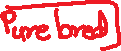 Pure bred